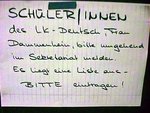 SCHÜLER/INNEN
des LK-Deutsch, Frau
Dannenhein, bitte umgehend
im Sekretariat melden
Es liegt eine Liste aus-
BITTE eintragen!